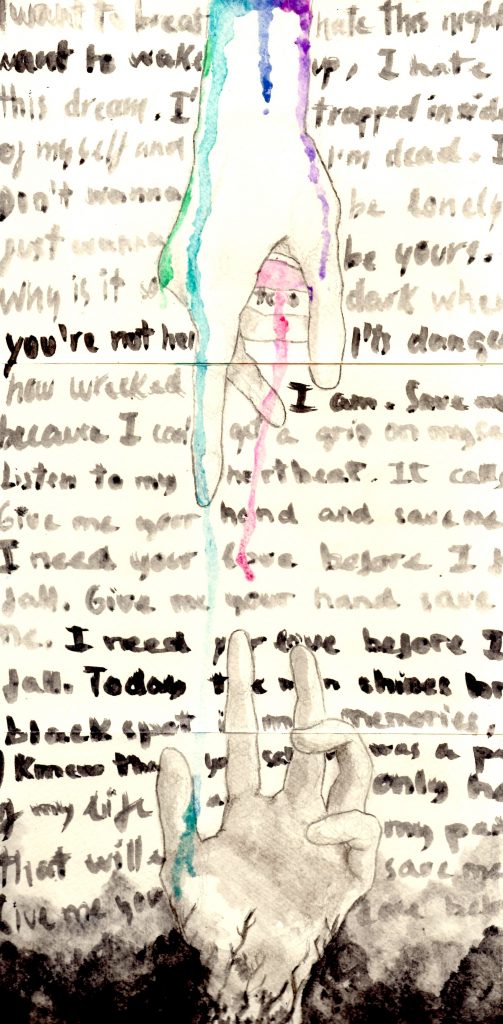 I want to breat hate this night
want to wake up, I hate
this dream. I' trapped inside
of myself and I'm dead. I
Don't wanna be lonely
just wanna be yours.
Why is it s dark whe
you're not her I'ts dange
how wrecked I am. Save me
because I can' get a grip on myse
Listen to my heartbeat. It calls
Give me your hand and save me
I need your love before I f
fall. Give me your hand save
me. I need your love before I
fall. Today the moon shines
black spot in my memories.
I Knew tha you sa was a p
of my life a only ho
my pas
that will save me
Give me you love be